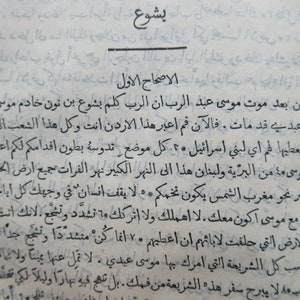 يشوع
الاصحاح الاول
بعد موت موسى عبد الرب ان الرب كلم يشوع بن نون خادم موسى
عبدي قد مات . فالآن قم اعبر هذا الاردن انت وكل هذا الشعب
لهم اي لبني اسرائيل ٢٠ كل موضع تدوسه بطون اقدامكم لكم
موسى ٤٠ من البرية ولبنان هذا الى النهر الكبير نهر الفرات جميع ارض
نحو مغرب الشمس يكون تخمكم ٥٠ لا يقف انسان في وجهك كل ايام
مع موسى اكون معك . لا اهملك ولا اتركك ٦٠ تشدد وتشجع . لانك انت
الارض التي حلفت لابائهم ان اعطيهم ٧٠ انما كن متشددا وتشجع جدا
حسب كل الشريعة التي امرك بها موسى عبدي . لا تمل عنها يمينا ولا
٨٠ لا يبرح سفر هذه الشريعة من فمك . بل تلهج فيه نهارا وليلا لكي